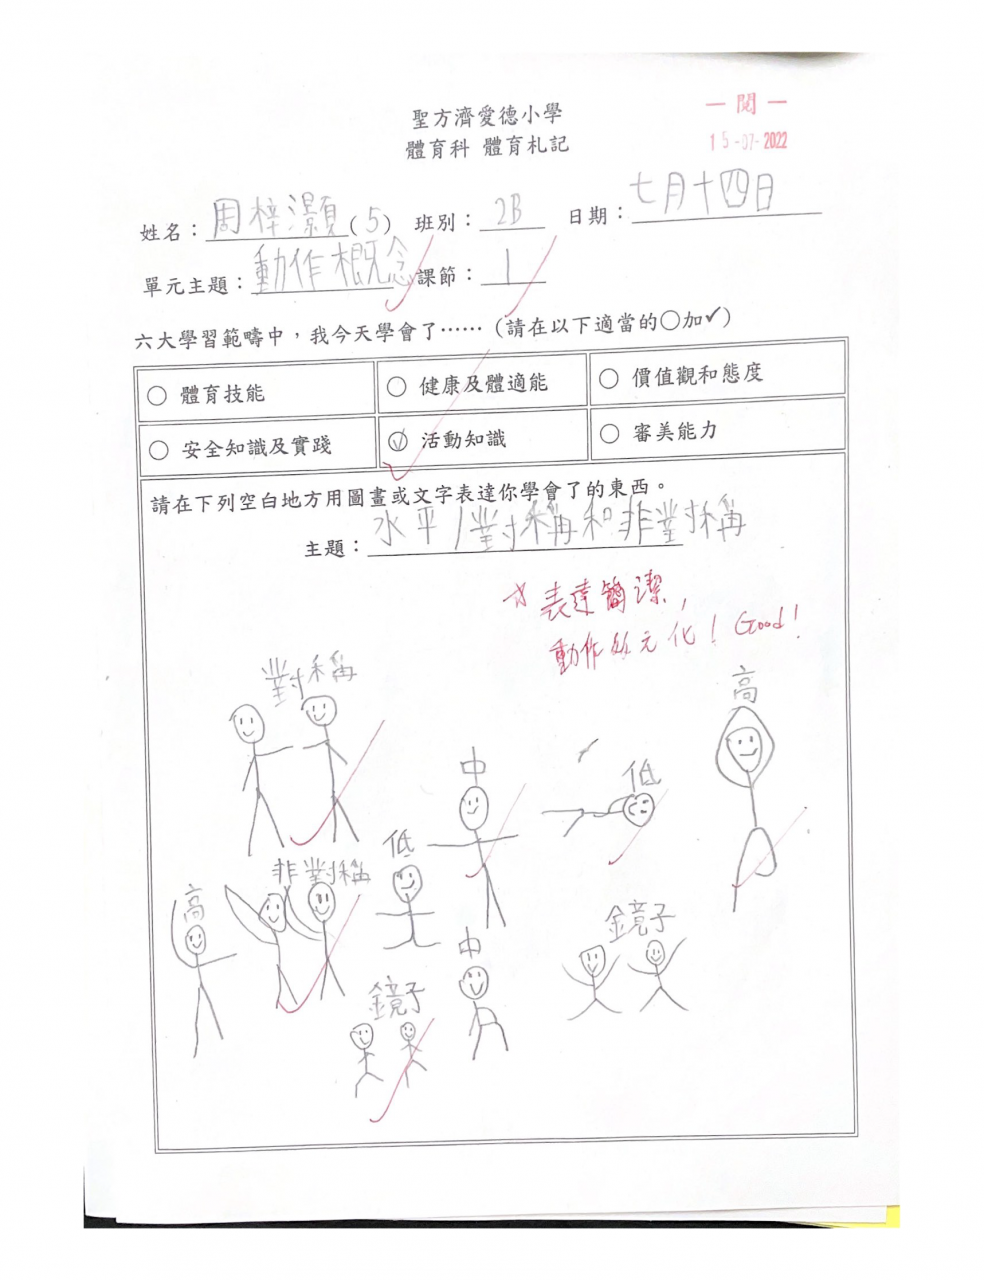 聖方濟愛德小學
體育科 體育札記
— 閱 —
15-07-2022
姓名：周梓灝(5) 班別：2B 日期：七月十四日
單元主題：動作概念 課節：1
六大學習範疇中，我今天學會了……（請在以下適當的○加✔）
○ 體育技能 ○ 健康及體適能 ○ 價值觀和態度
○ 安全知識及實踐 ✓ 活動知識 ○ 審美能力
請在下列空白地方用圖畫或文字表達你學會了的東西。
主題：水平/對稱和非對稱
表達簡潔，
動作 元化！Good！
對稱
高
中
低
低
非對稱
高
鏡子
中
鏡子